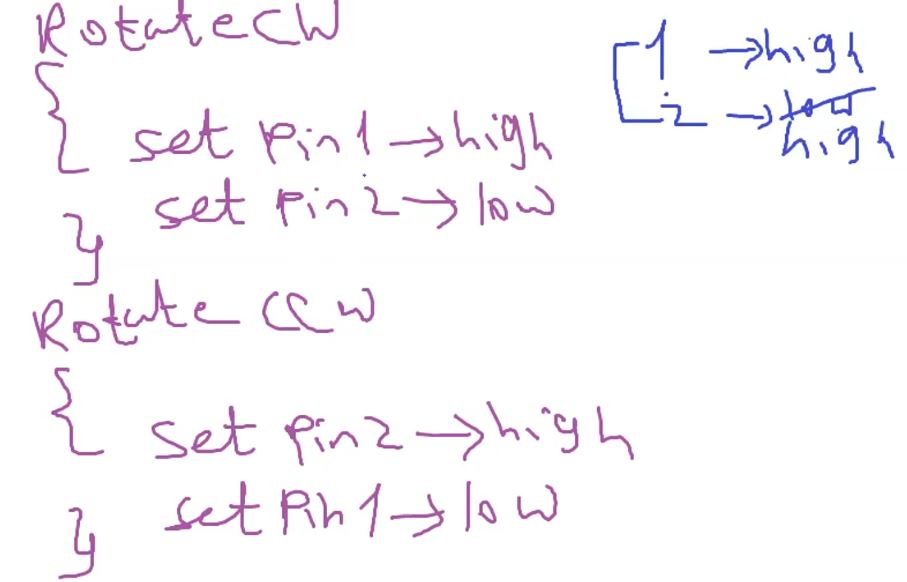 RotateCW
{
set Pin1→high
set Pin2→low
}
Rotate CCW
{
set Pin2→high
set Pin1→low
}
1 →high
2 →low
high